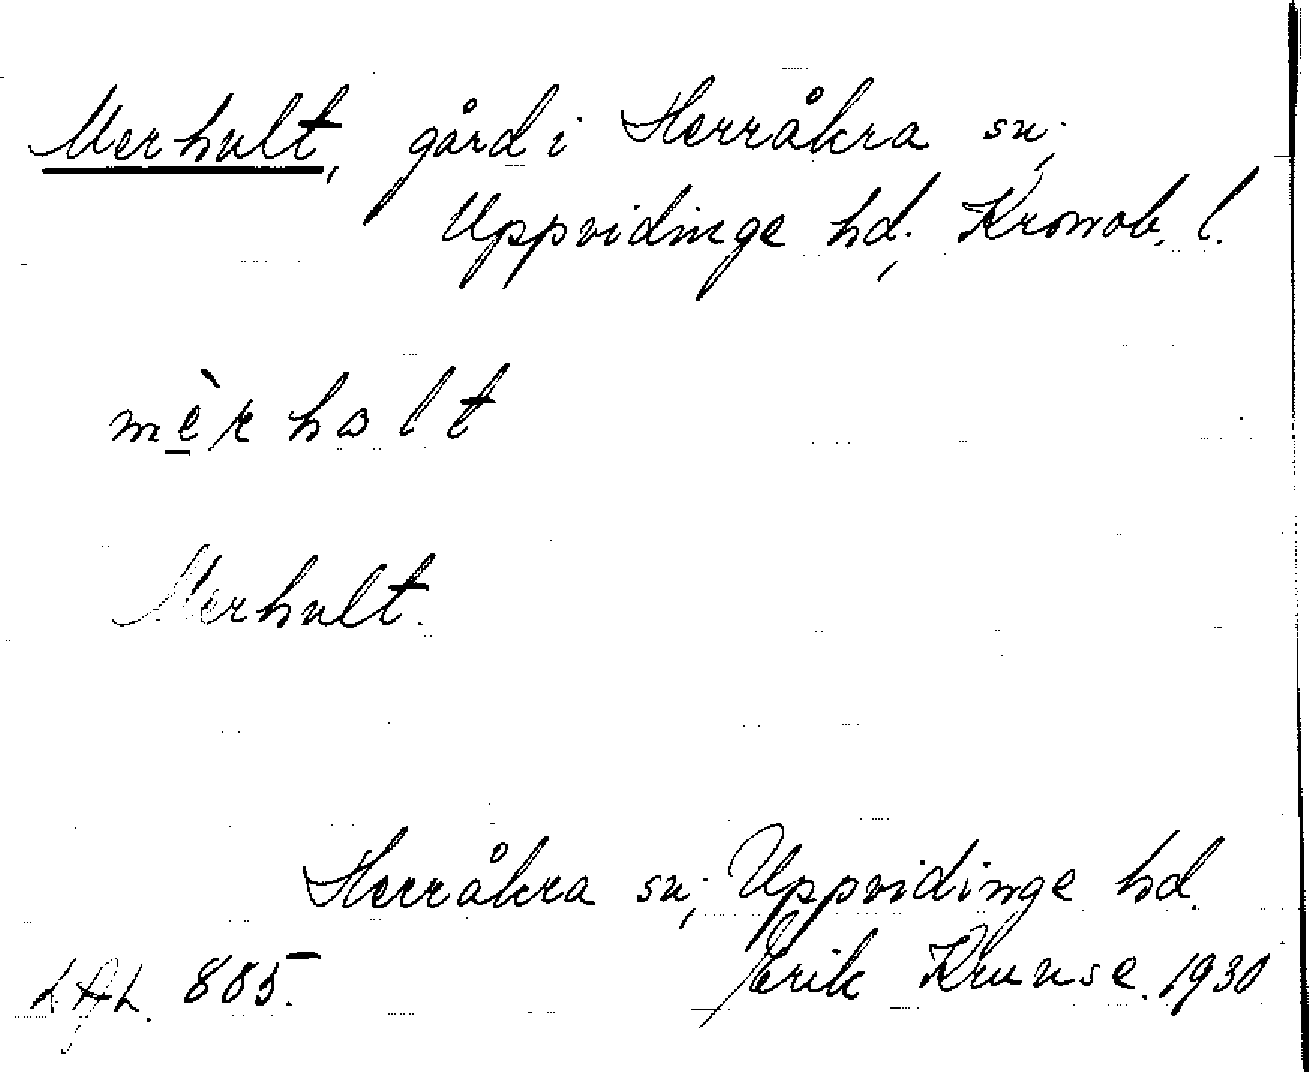 Merhult, gård i Herråkra sn.,
Uppvidinge hd., Kronob. l.
mèrhalt
Merhult.
Herråkra sn., Uppvidinge hd.
Erik Krunse. 1930
885.